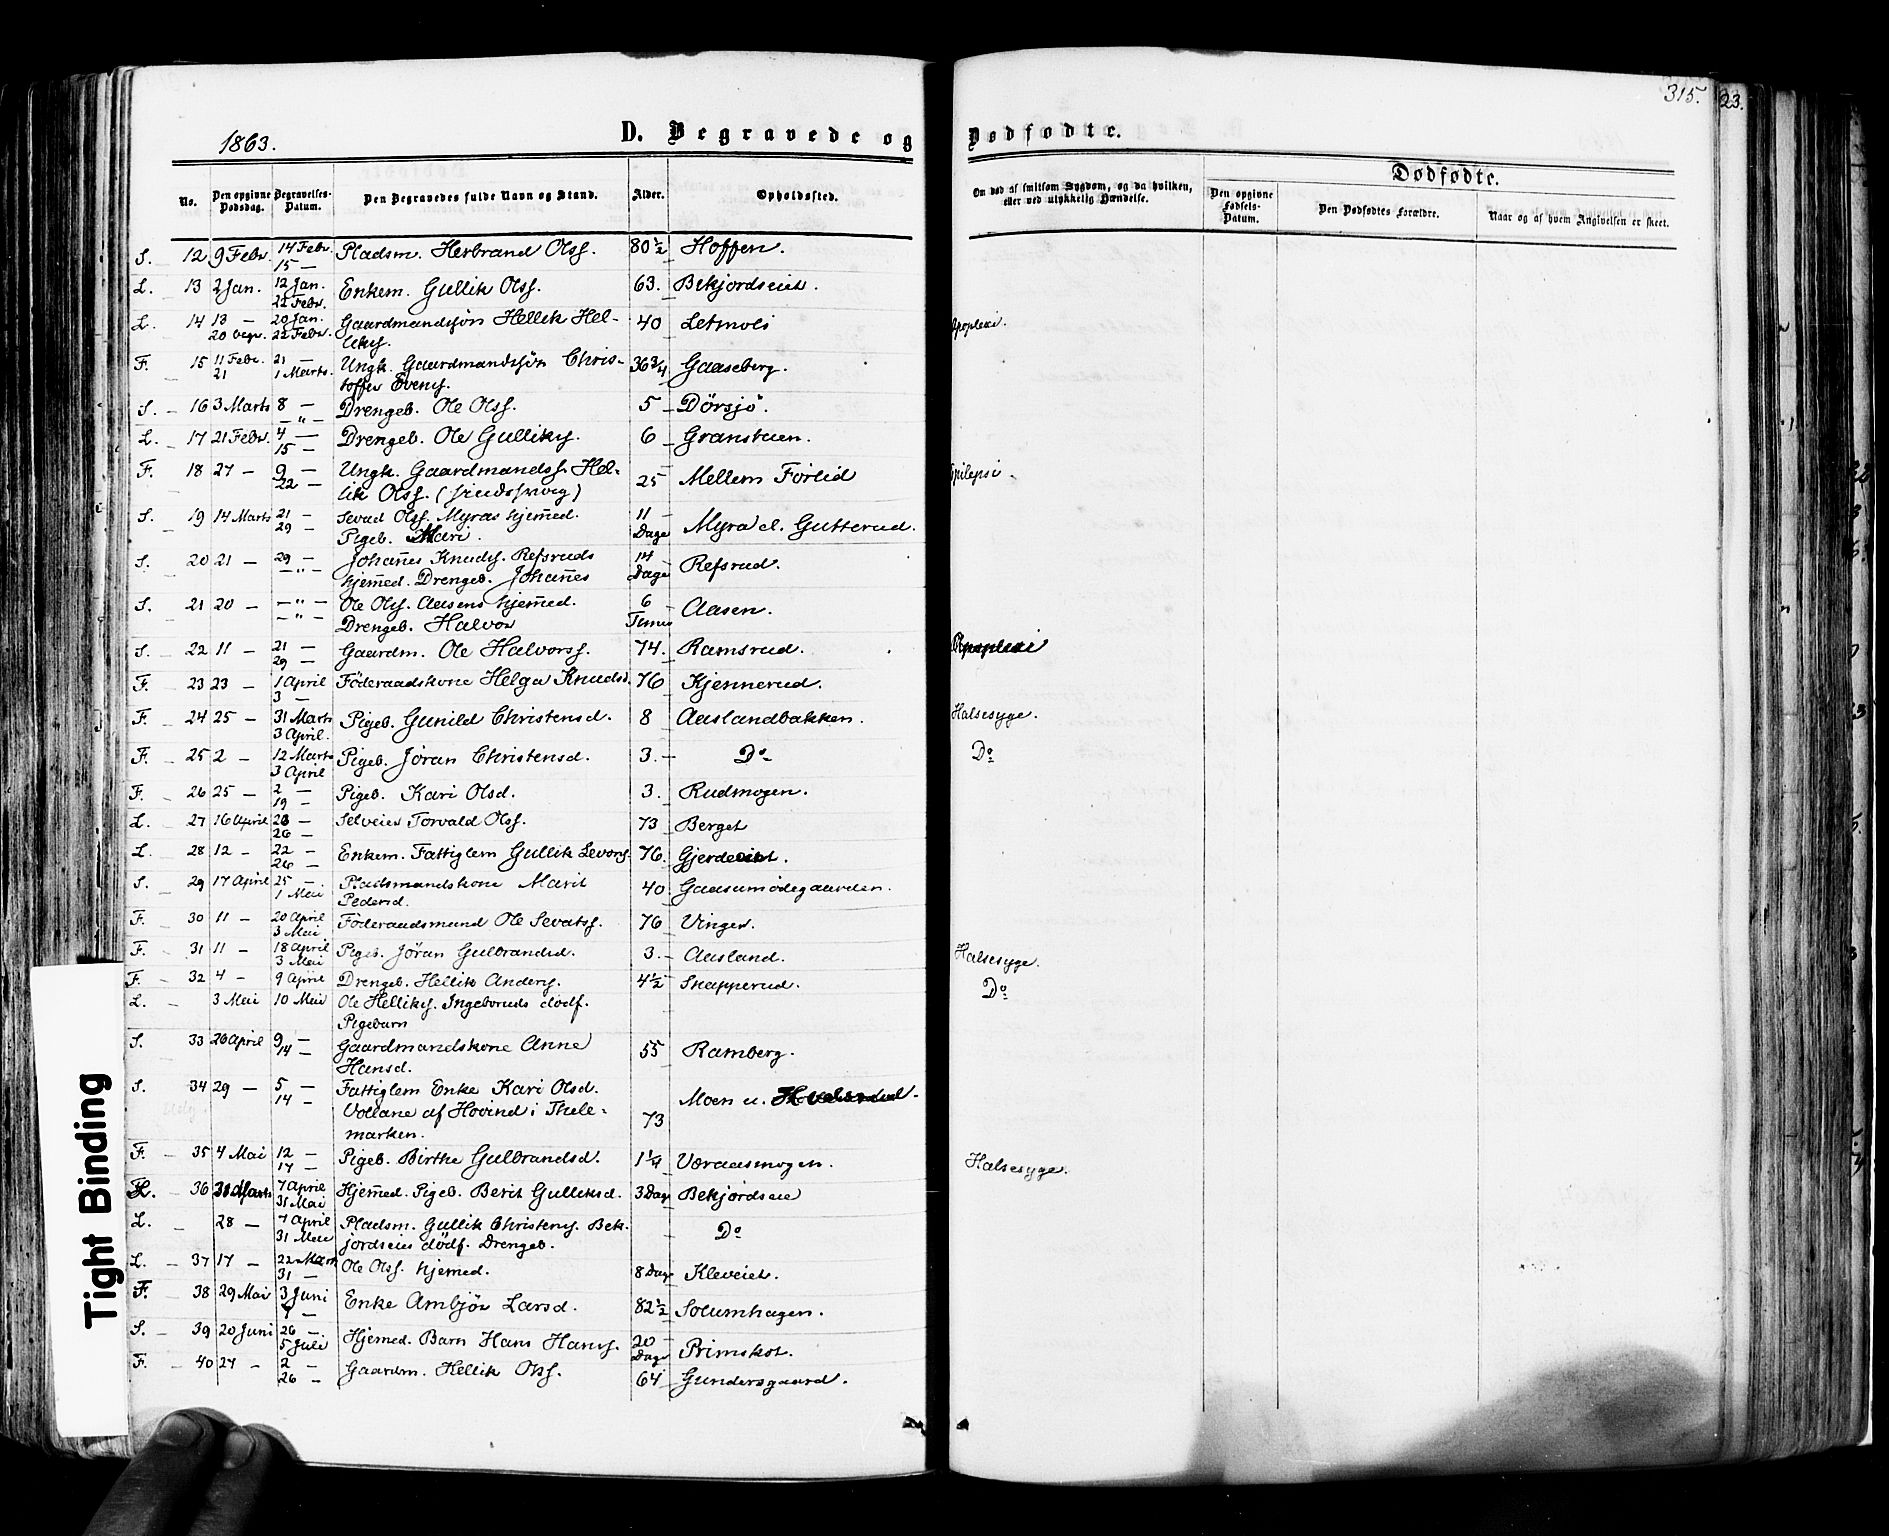 315.
23.
1863.
D. Begravede og Dødfødte.
No.
Den opgivne Dødsdag.
Begravelses-Datum.
Den Begravedes fulde Navn og Stand.
Alder.
Opholdssted.
Om død af smitsom Sygdom, og da hvilken, eller ved ulykkelig Hændelse.
Dødfødte.
Den opgivne Fødsels-Datum.
Den Dødfødtes Forældre.
Naar og af hvem Angivelsen er skeet.
S. 12 9 Febr. 14 Febr. Pladsm. Herbrand Olss. 80½ Hoffen.
15 —
L. 13 2 Jan. 12 Jan. Enkem. Gullik Olss. 63. Bekjordseiet.
22 Febr.
L. 14 13 — 20 Jan. Gaardmandssøn Hellik Hel- 40 Letmoli Apoplexi.
20 22 Febr. liks.
F. 15 11 Febr. 21 — Ungk. Gaardmandssøn Chris- 36¾ Gaaseberg.
21 1 Marts. toffer Evens.
S. 16 3 Marts 8 — Drengeb. Ole Olss. 5 Dörsjö.
— " —
L. 17 21 Febr. 4 — Drengeb. Ole Gulliks. 6 Granstuen.
15 —
F. 18 27 — 9 — Ungk. Gaardmandss. Hel- 25 Mellem Förlid Epilepsi.
22 — lik Olss. (sindssvag)
S. 19 14 Marts 21 — Sevad Olss. Myras hjemed. 11 Dage Myra e. Gutterud.
29 — Pigeb. Mari.
S. 20 21 — 29 — Johañes Knuds. Refsruds 14 Dage Refsrud.
— " — hjemed. Drengeb. Johañes
S. 21 20 — — " — Ole Olss. Aasens hjemed. 6 Timer Aasen.
— " — Drengeb. Halvor
S. 22 11 — 21 — Gaardm. Ole Halvorss. 74. Ramsrud. Apoplexi
29 —
F. 23 23 — 1 April Föderaadskone Helga Knudsd. 76 Kjennerud.
3 —
F. 24 25 — 31 Marts Pigeb. Gunild Christensd. 8 Aaslandbakken. Halsesyge.
3 April.
F. 25 2 — 12 Marts Pigeb. Jöran Christensd. 3. Do Do
3 April
F. 26 25 — 2 — Pigeb. Kari Olsd. 3. Rudmogen.
19 —
L. 27 16 April 23 — Selveier Torvald Olss. 73 Berget
26 —
L. 28 12 — 22 — Enkem. Fattiglem Gullik Levors. 76. Gjerdeeiet.
26 —
S. 29 17 April 25 — Pladsmandskone Marit 40 Gaasumödegaarden.
1 Mai Pedersd.
F. 30 11 — 20 April Föderaadsmand Ole Sevatss. 76 Vinger.
3 Mai
F. 31 11 — 18 April Pigeb. Jöran Gulbrandsd. 3. Aasland. Halsesyge.
3 Mai
F. 32 4 — 9 April Drengeb. Hellik Anders. 4½ Snapperud. Do
L. 3 Mai 10 Mai Ole Helliks. Ingebruds dödf.
Pigebarn
S. 33 26 April 9 — Gaardmandskone Anne 55 Ramberg.
14 — Hansd.
S. 34 29 — 5 — Fattiglem Enke Kari Olsd. 73 Moen u.
14 — Vollane af Hovind i Thele-
marken.
F. 35 4 Mai 12 — Pigeb. Birthe Gulbrandsd. 1¼ Væraasmogen. Halsesyge.
17 —
L. 36 31 Marts 7 April Hjemed. Pigeb. Berit Gulliksd. 3 Dage Bekjordseie
31 Mai
L. 28 — 7 April Pladsm. Gullik Christens. Bek- Do
31 Mai jordseies dödf. Drengeb.
L. 37 17 — 22 Marts Ole Olss. hjemed. 8 Dage Kleveiet.
31 —
F. 38 29 Mai 3 Juni Enke Ambjör Larsd. 82½ Solumhagen.
7 —
S. 39 20 Juni 26 — Hjemed. Barn Hans Hanss. 20 Dage Primskot.
5 Juli
F. 40 27 — 2 — Gaardm. Hellik Olss. 64 Gundersgaard.
26 —
Tight Binding